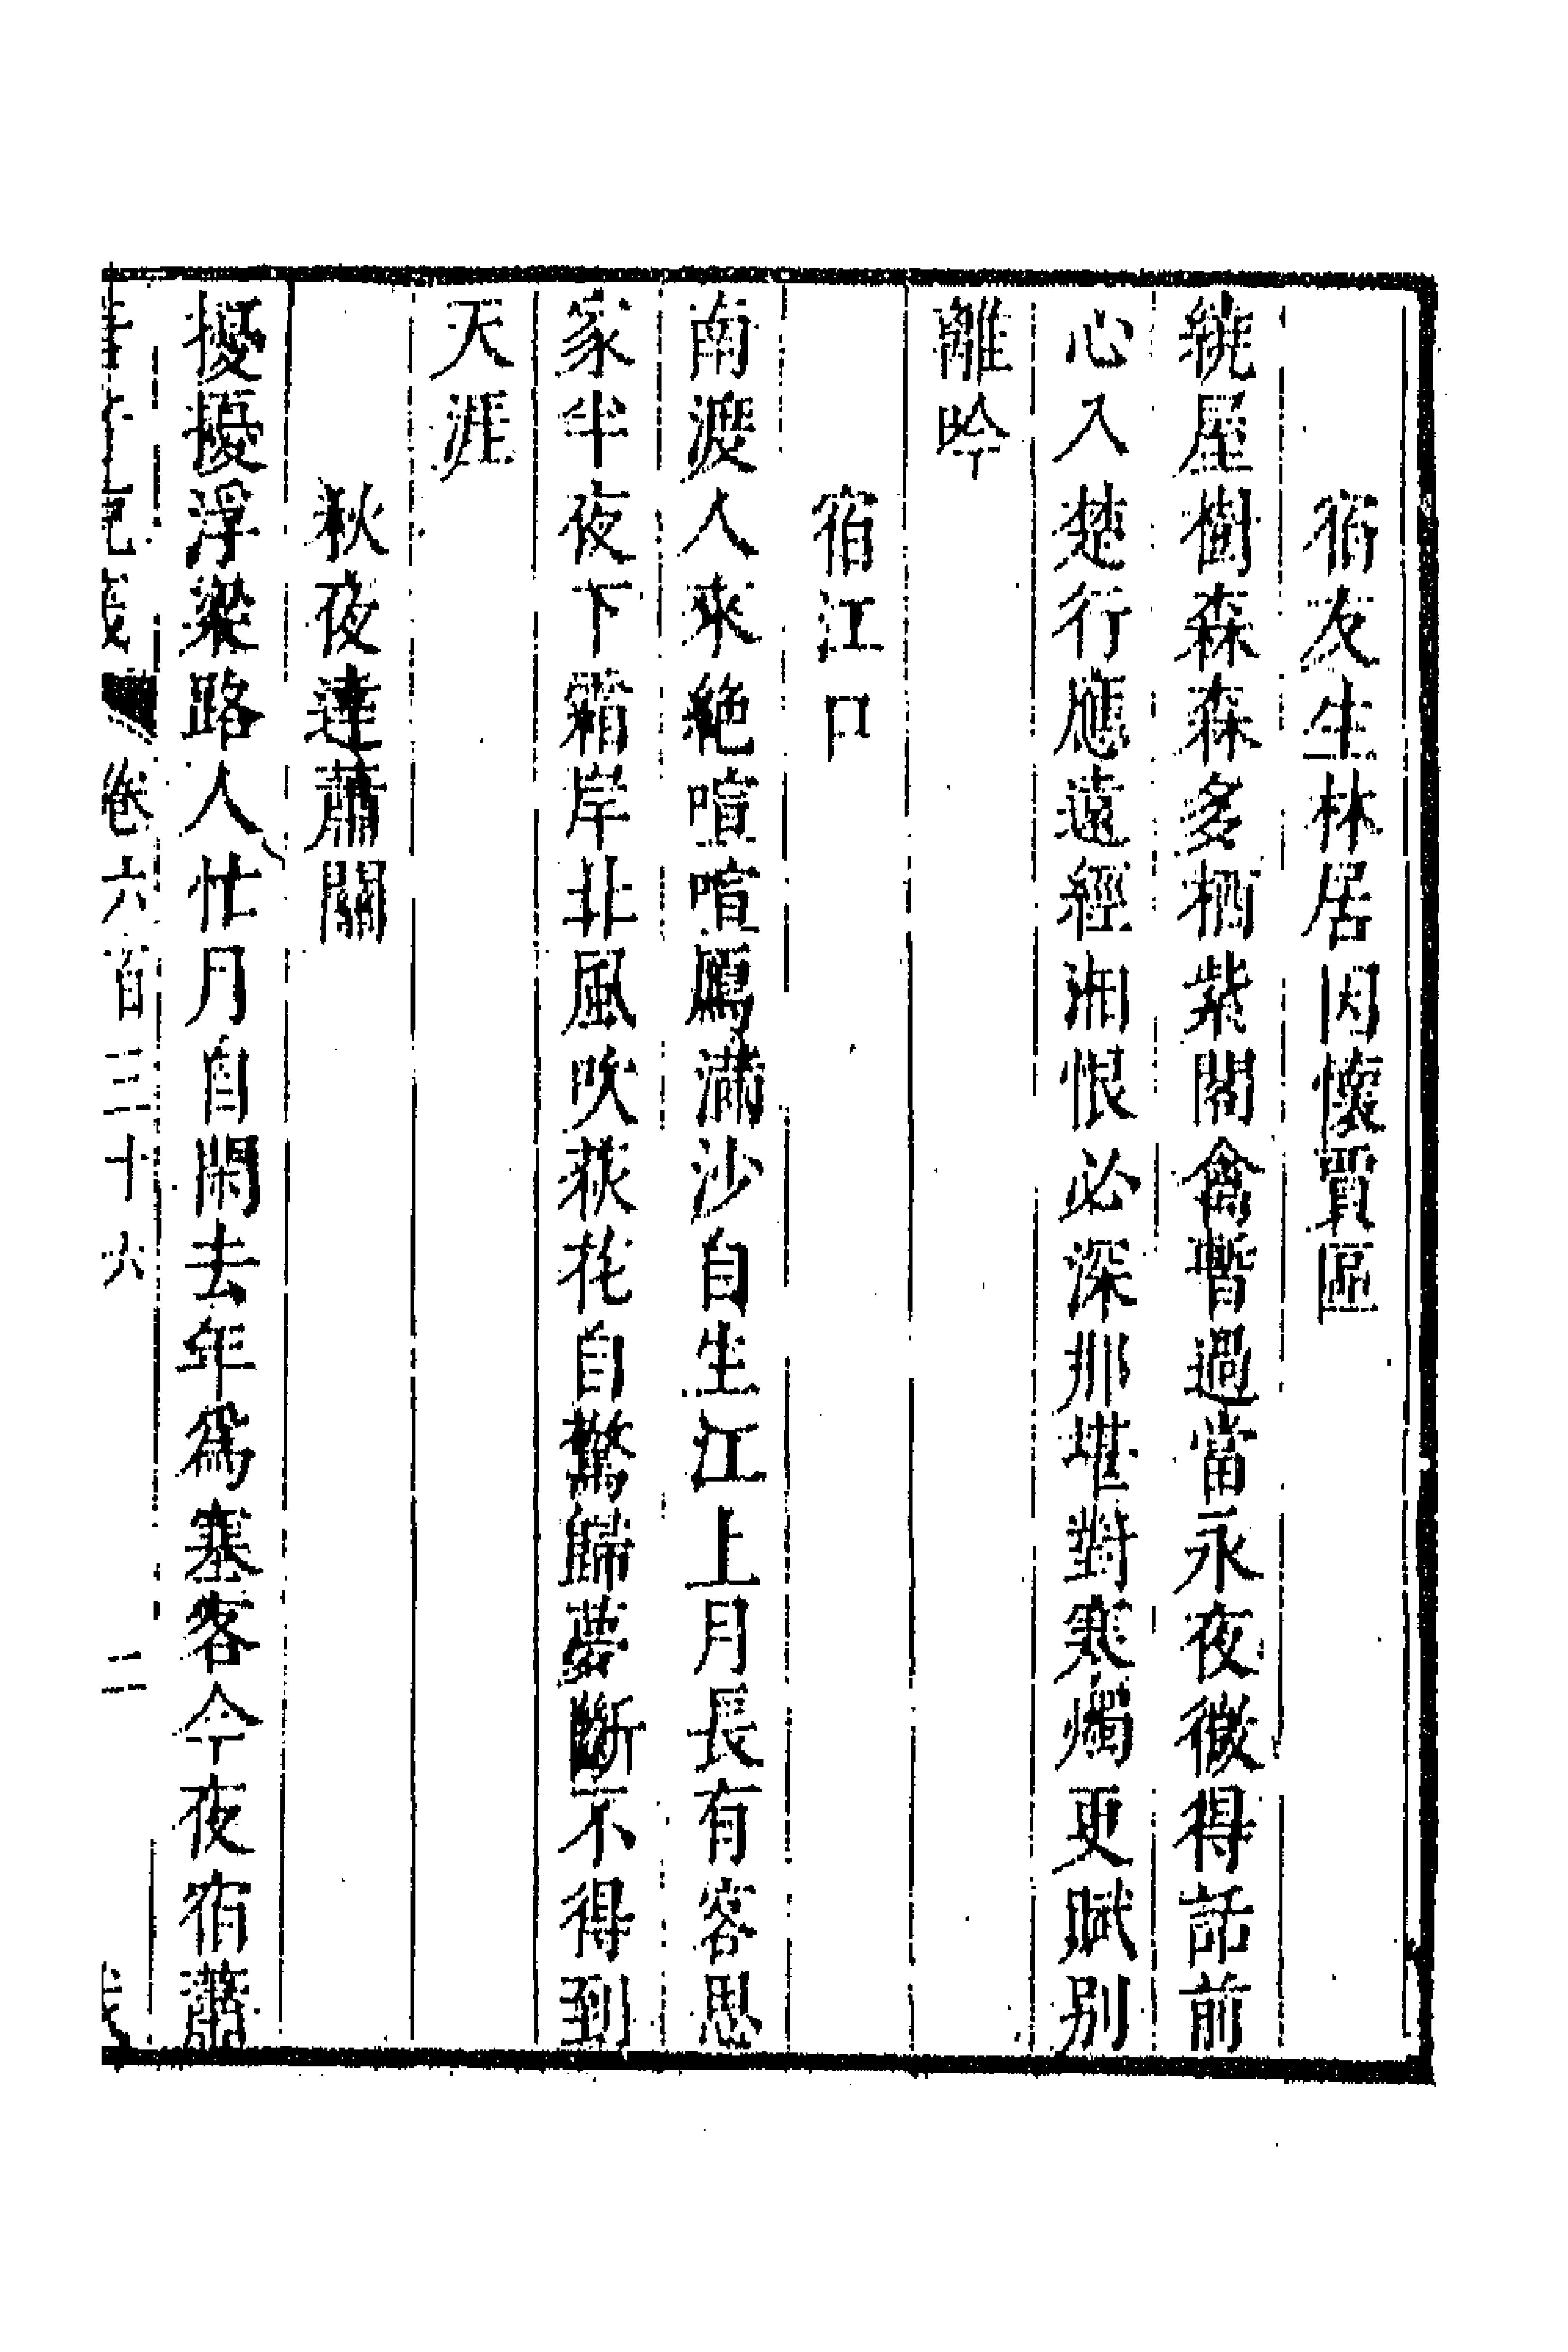 宿友生林居因懷賈區
繞屋樹森森多栖紫閣禽暫過當永夜微得話前
心入楚行應遠經湘恨必深那堪對寒燭更賦别
離吟
宿江口
南渡人來絶喧喧鴈滿沙自生江上月長有客思
家半夜下霜岸北風吹荻花自驚歸夢斷不得到
天涯
秋夜達蕭關
擾擾浮梁路人忙月自閑去年爲塞客今夜宿蕭
卷六百三十六 二